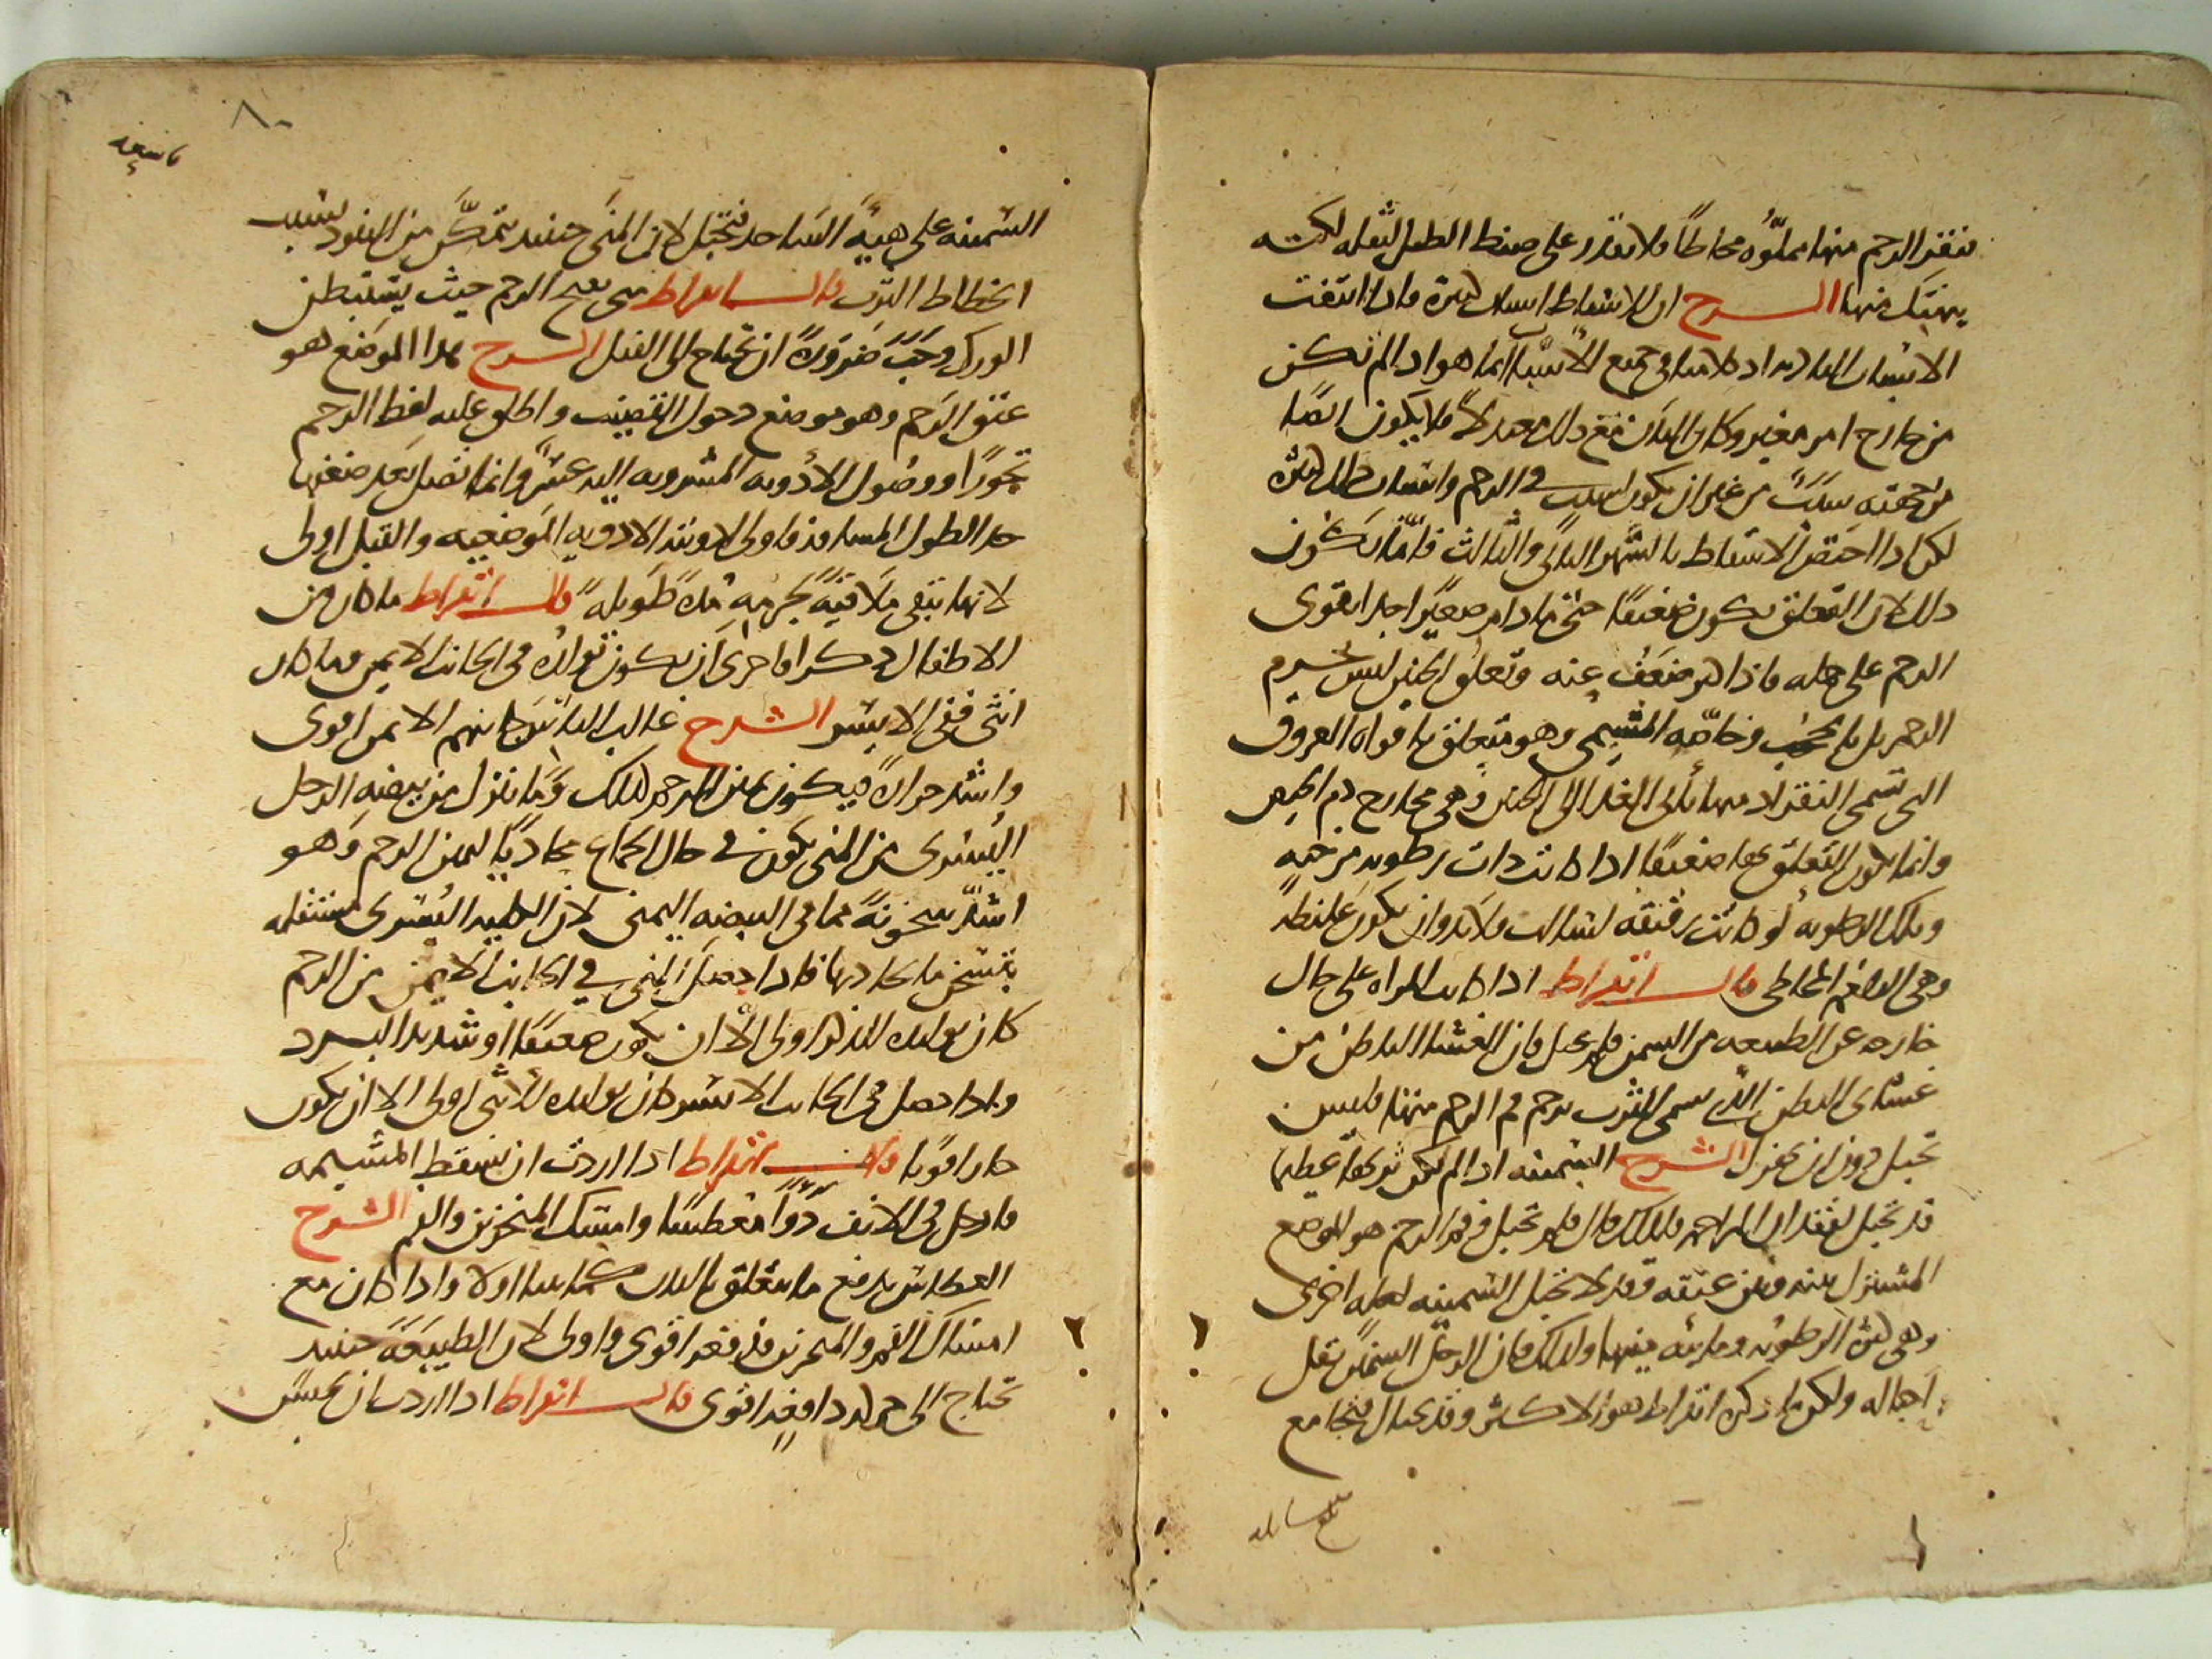 فنقر الرحم منها مملؤه مخاطا ولا تقدر على ضبط الطفل لثقله لكنه
ينهتك منها الشرح ان للاسقاط اسباب كثيرة واذا اتفقت
الاسباب البادية اذ كلامنا في جميع الاسباب انما هو اذا لم تكن
من خارج امر مغير وكان البدن مع ذلك معتدلا فلا يكون ايضا
من جهته سبب من غير ان يكون لسبب في الرحم واسباب ذلك كثيرة
لكن اذا اختص الاسقاط بالشهر الثاني والثالث فانما تكون
ذلك لان التعلق يكون ضعيفا حتى ما دام صغيرا جدا تقوى
الرحم على حمله فاذا كبر ضعفت عنه وتعلق الجنين ليس بجرم
الرحم بل بالحجب وخاصة المشيمي وهو متعلق بافواه العروق
التي تسمى النقر اذ منها يأتي الغذا الى الجنين وهي مخارج دم الحيض
وانما يكون التعلق بها ضعيفا اذا كانت ذات رطوبه مرخيه
وتلك الرطوبه لو كانت رقيقه لسالت فلا بد وان يكون غليظه
وهي البلغم المخاطي قال ابقراط اذا كانت المراه على حال
خارجه عن الطبيعه من السمن فلم تحبل فان الغشا الباطن من
غشائي البطن الذي يسمى الثرب يزحم فم الرحم منها فليس
تحبل دون ان تهزل الشرح السمينه اذا لم يكن ثربها عظيما
قد تحبل لفقدان المزاحم فلذلك قال فلم تحبل وفم الرحم هو الموضع
المشترك بينه وبين عنقه وقد لا تحبل السمينه لعله اخرى
وهي كثرة الرطوبه ومائيه منيها ولذلك فان الرجل السمين يقل
احباله ولكن ما ذكره ابقراط هو الاكثر وقد يحتال فتجامع
٨٠
السمينه على هيئة الساجد فتحبل لان المني حينئذ يتمكن من النفوذ بسبب
انحطاط الثرب قال ابقراط متى تقيح الرحم حيث يستبطن
الورك وجب ضرورة ان تحتاج الى الفتل الشرح هذا الموضع هو
عنق الرحم وهو موضع دخول القضيب واطلق عليه لفظ الرحم
تجوزا ووصول الادويه المشروبه اليه عسر وانما تصل بعد ضعفها
جدا لطول المسافه فاولى ادويته الادويه الموضعيه والفتل اولى
لانها تبقى ملاقية لجرمه مدة طويله قال ابقراط ما كان من
الاطفال ذكرا فاحرى ان يكون تولده في الجانب الايمن وما كان
انثى ففي الايسر الشرح غالب الناس جانبهم الايمن اقوى
واشد حرارة فيكون يمين الرحم كذلك وما ينزل من بيضه الرجل
اليسرى من المني يكون في حال الجماع محاذيا ليمين الرحم وهو
اشد سخونة مما في البيضه اليمنى لان البيضه اليسرى مستفله
بتسخن ما يحاذيها فاذا حصل المني في الجانب الايمن من الرحم
كان تولده للذكر اولى الا ان يكون ضعيفا او شديد البرد
واذا حصل في الجانب الايسر كان تولده للانثى اولى الا ان يكون
حارا قويا قال ابقراط اذا اردت ان تسقط المشيمه
فادخل في الانف دوا معطسا وامسك المنخرين والفم الشرح
العطاس يدفع ما يتعلق بالبدن مما بينا اولا واذا كان مع
امساك الفم والمنخرين فدفعه اقوى واولى لان الطبيعة حينئذ
تحتاج الى حركه دافعة اقوى قال ابقراط اذا اردت ان تحبس